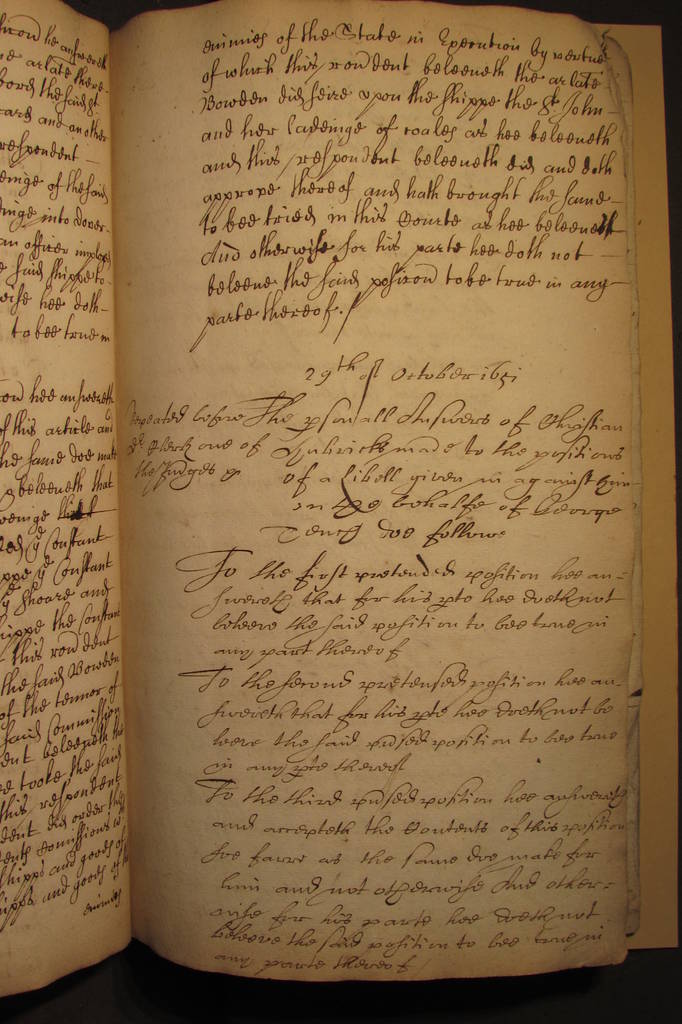 hee answereth
are arlate there-
bord the said St
and an other
respondent -
of the said
into dover
an officer imployed
said shippe to
hee doth -
to bee true in
hee answereth
of this article and
the same doe make
beleeveth that
ye Constant
ye Constant
ye shoare and
shippe the Constant
this rondent
the said Bowden
of the tennor of
said Commission
beleeveth
tooke the said
this respondent
dent did order the
Commissions
shipps and goods of
shipps and goods of the
enimies
enimies of the State in Execution by vertue
of which this rondent beleeveth the arlate
Bowden did seize upon the shippe the St John -
and her ladeinge of coales as hee beleeveth
and this respondent beleeveth did and doth
approve thereof and hath brought the same -
to bee tried in this Courte as hee beleeveth
And otherwise for his parte hee doth not -
beleeve the said posicon to be true in any -
parte thereof./
29th of October 1651
Repeated before The psonall Answers of Christian
Dr Clerk one of Lubricks made to the positions
the Judges of a libell given in against him
in the behalfe of George
doe followe
To the first pretended position hee an=
swereth that for his pte hee doeth not
beleeve the said position to bee true in
any part thereof
To the second pretensed position hee an-
swereth that for his pte hee doeth not be
leeve the said pnsed position to bee true
in any pte thereof
To the third pnsed position hee answereth
and accepteth the Contents of this position
soe farre as the same doe make for
him and not otherwise And other=
wise for his parte hee doeth not
beleeve the said position to bee true in
any parte thereof